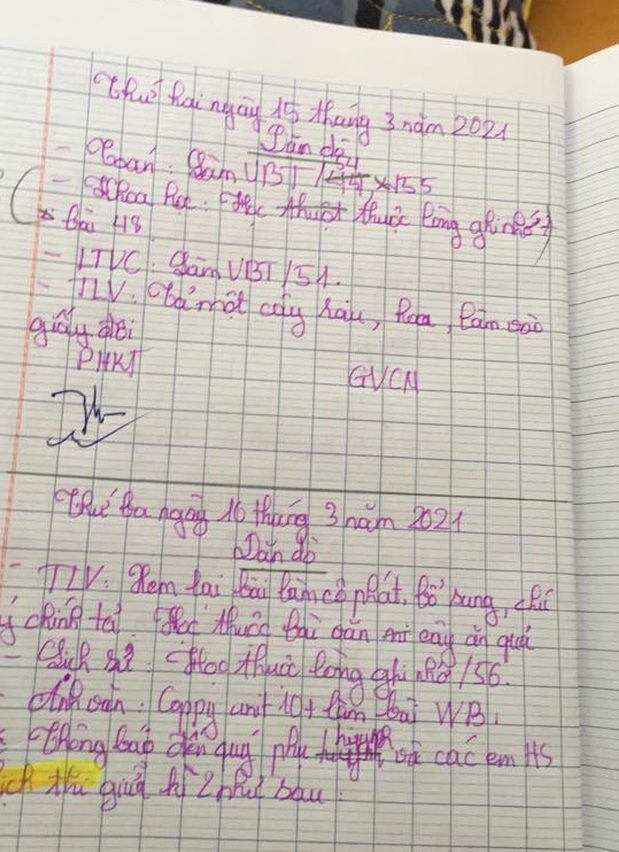 Thứ hai ngày 15 tháng 3 năm 2021
Dặn dò
- Toán: Làm VBT / 54 x 155
- Khoa học: Học thuột thuộc lòng ghi nhớ
bài 48
- LTVC: Làm VBT/51.
- TLV: Tả một cây rau, hoa, làm vào
giấy đôi
PHKT
GVCN
Thứ ba ngày 16 tháng 3 năm 2021
Dặn dò
- TLV: Xem lại bài làm cô phát, bổ sung, chú
ý chính tả. Học thuộc bài văn mi cây ăn quả
- Lịch sử: Học thuộc lòng ghi nhớ /56.
- Anh văn: Coppy unit 10 + làm bài WB.
Thông báo đến quý phụ huynh và các em HS
lịch thi giữa kì 2 như sau: